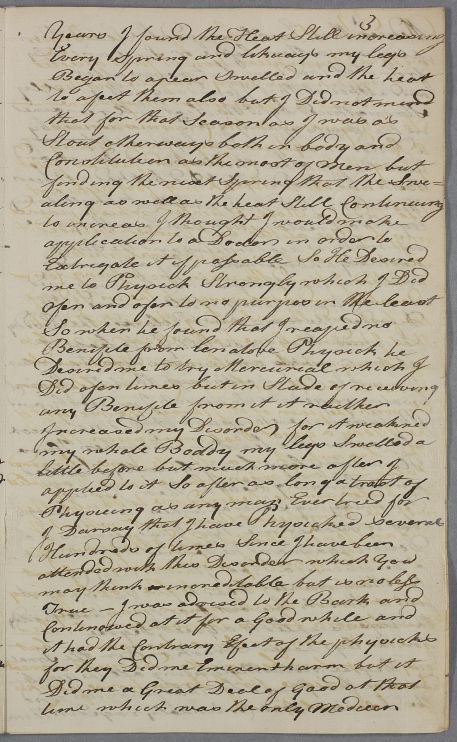 3
Years I found the Heat Still increasing
Every Spring and likways my legs
Began to apear Swelled and the heat
to afect them also but I Did not mind
that for that Season as I was as
Stout otherways both in body and
Constitution as the most of men but
finding the next Spring that the Swe=
aling as well as the heat Still Continuing
to increas I thought I would make
application to a Doctor in order to
Extrigate it if possable So He Desired
me to Physick Strongly which I Did
ofen and ofen to no purpos in the least
So when he found that I reaped no
Benifite from Physick he
Desired me to try Mercurial which I
Did ofen times but in Stade of receiving
any Benifite from it it reather
Increased my Disorder for it weakned
my whole Boddy my legs Swelled a
little before but much more after I
applied to it So after as long a tract of
Physicing as any man Ever tried for
I Darsay that I have Physicked Several
Hundreds of times Since I have been
attended with this Disorder which you
may think incredable but is no less
True – I was advised to the Bark and
Continowed at it for a Good while and
it had the Contrary Efect of the physicks
for they Did me Eminent harm but it
Did me a Great Deal of Good at that
time which was the only Medicen